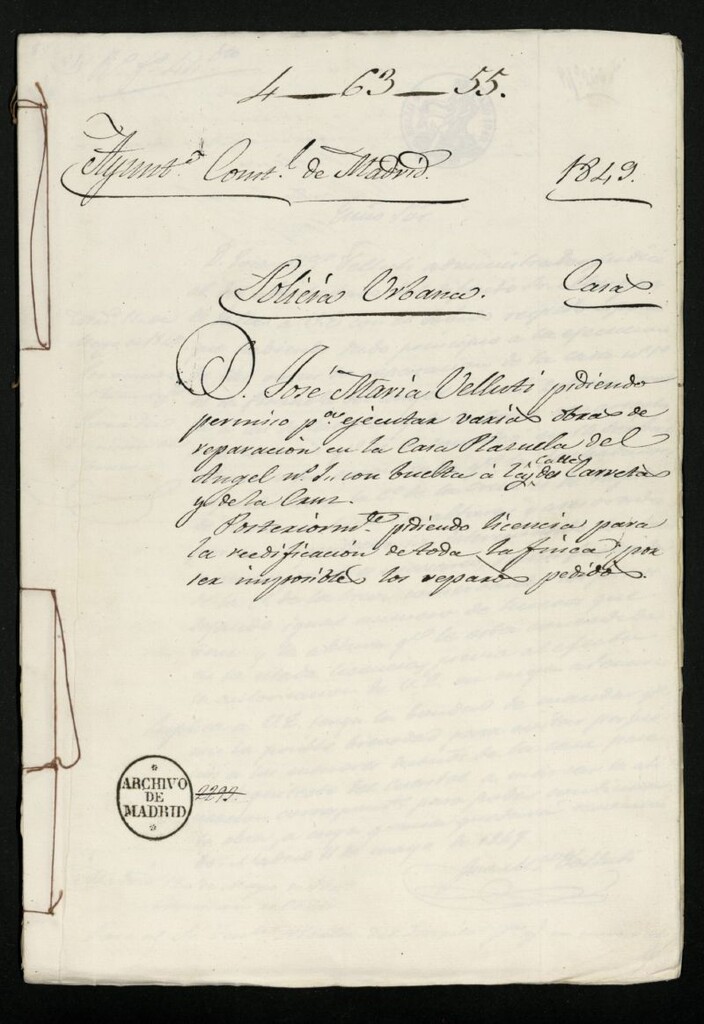 4 — 63 — 55.
Ayunt.º Const.l de Madrid. 1849.
Policía Urbana. Casas
D. José Maria Velluti pidiendo
permiso p.ª ejecutar varias obras de
reparación en la Casa Plazuela del
Angel n.º 1.. con buelta á las Calles de Carretas
y de la Cruz.
Posteriorm.te pidiendo licencia para
la reedificación de toda la finca, por
ser imposible los reparos pedidos.
ARCHIVO
DE
MADRID
2299.